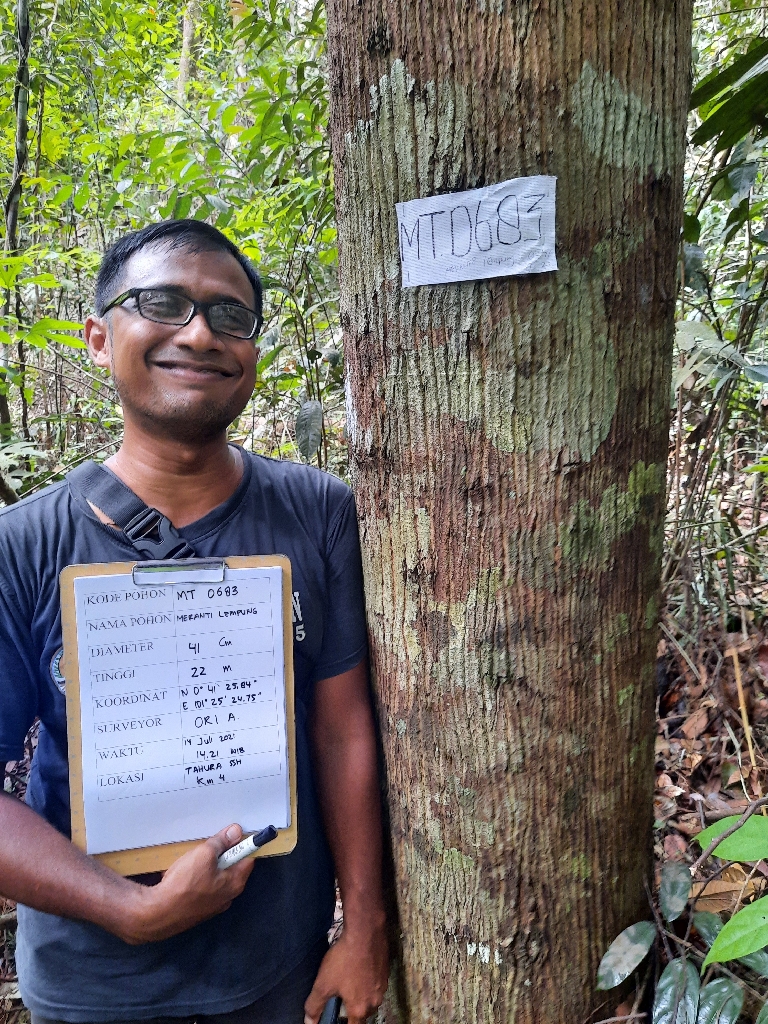 MT.0683
KODE POHON MT 0683
NAMA POHON MERANTI LEMPUNG
DIAMETER 41 Cm
TINGGI 22 m
KOORDINAT N 0° 41' 25.84"
E 101° 25' 24.75"
SURVEYOR ORI A.
WAKTU 14 Juli 2021
14.21 WIB
LOKASI TAHURA SSH
Km 4
N
5